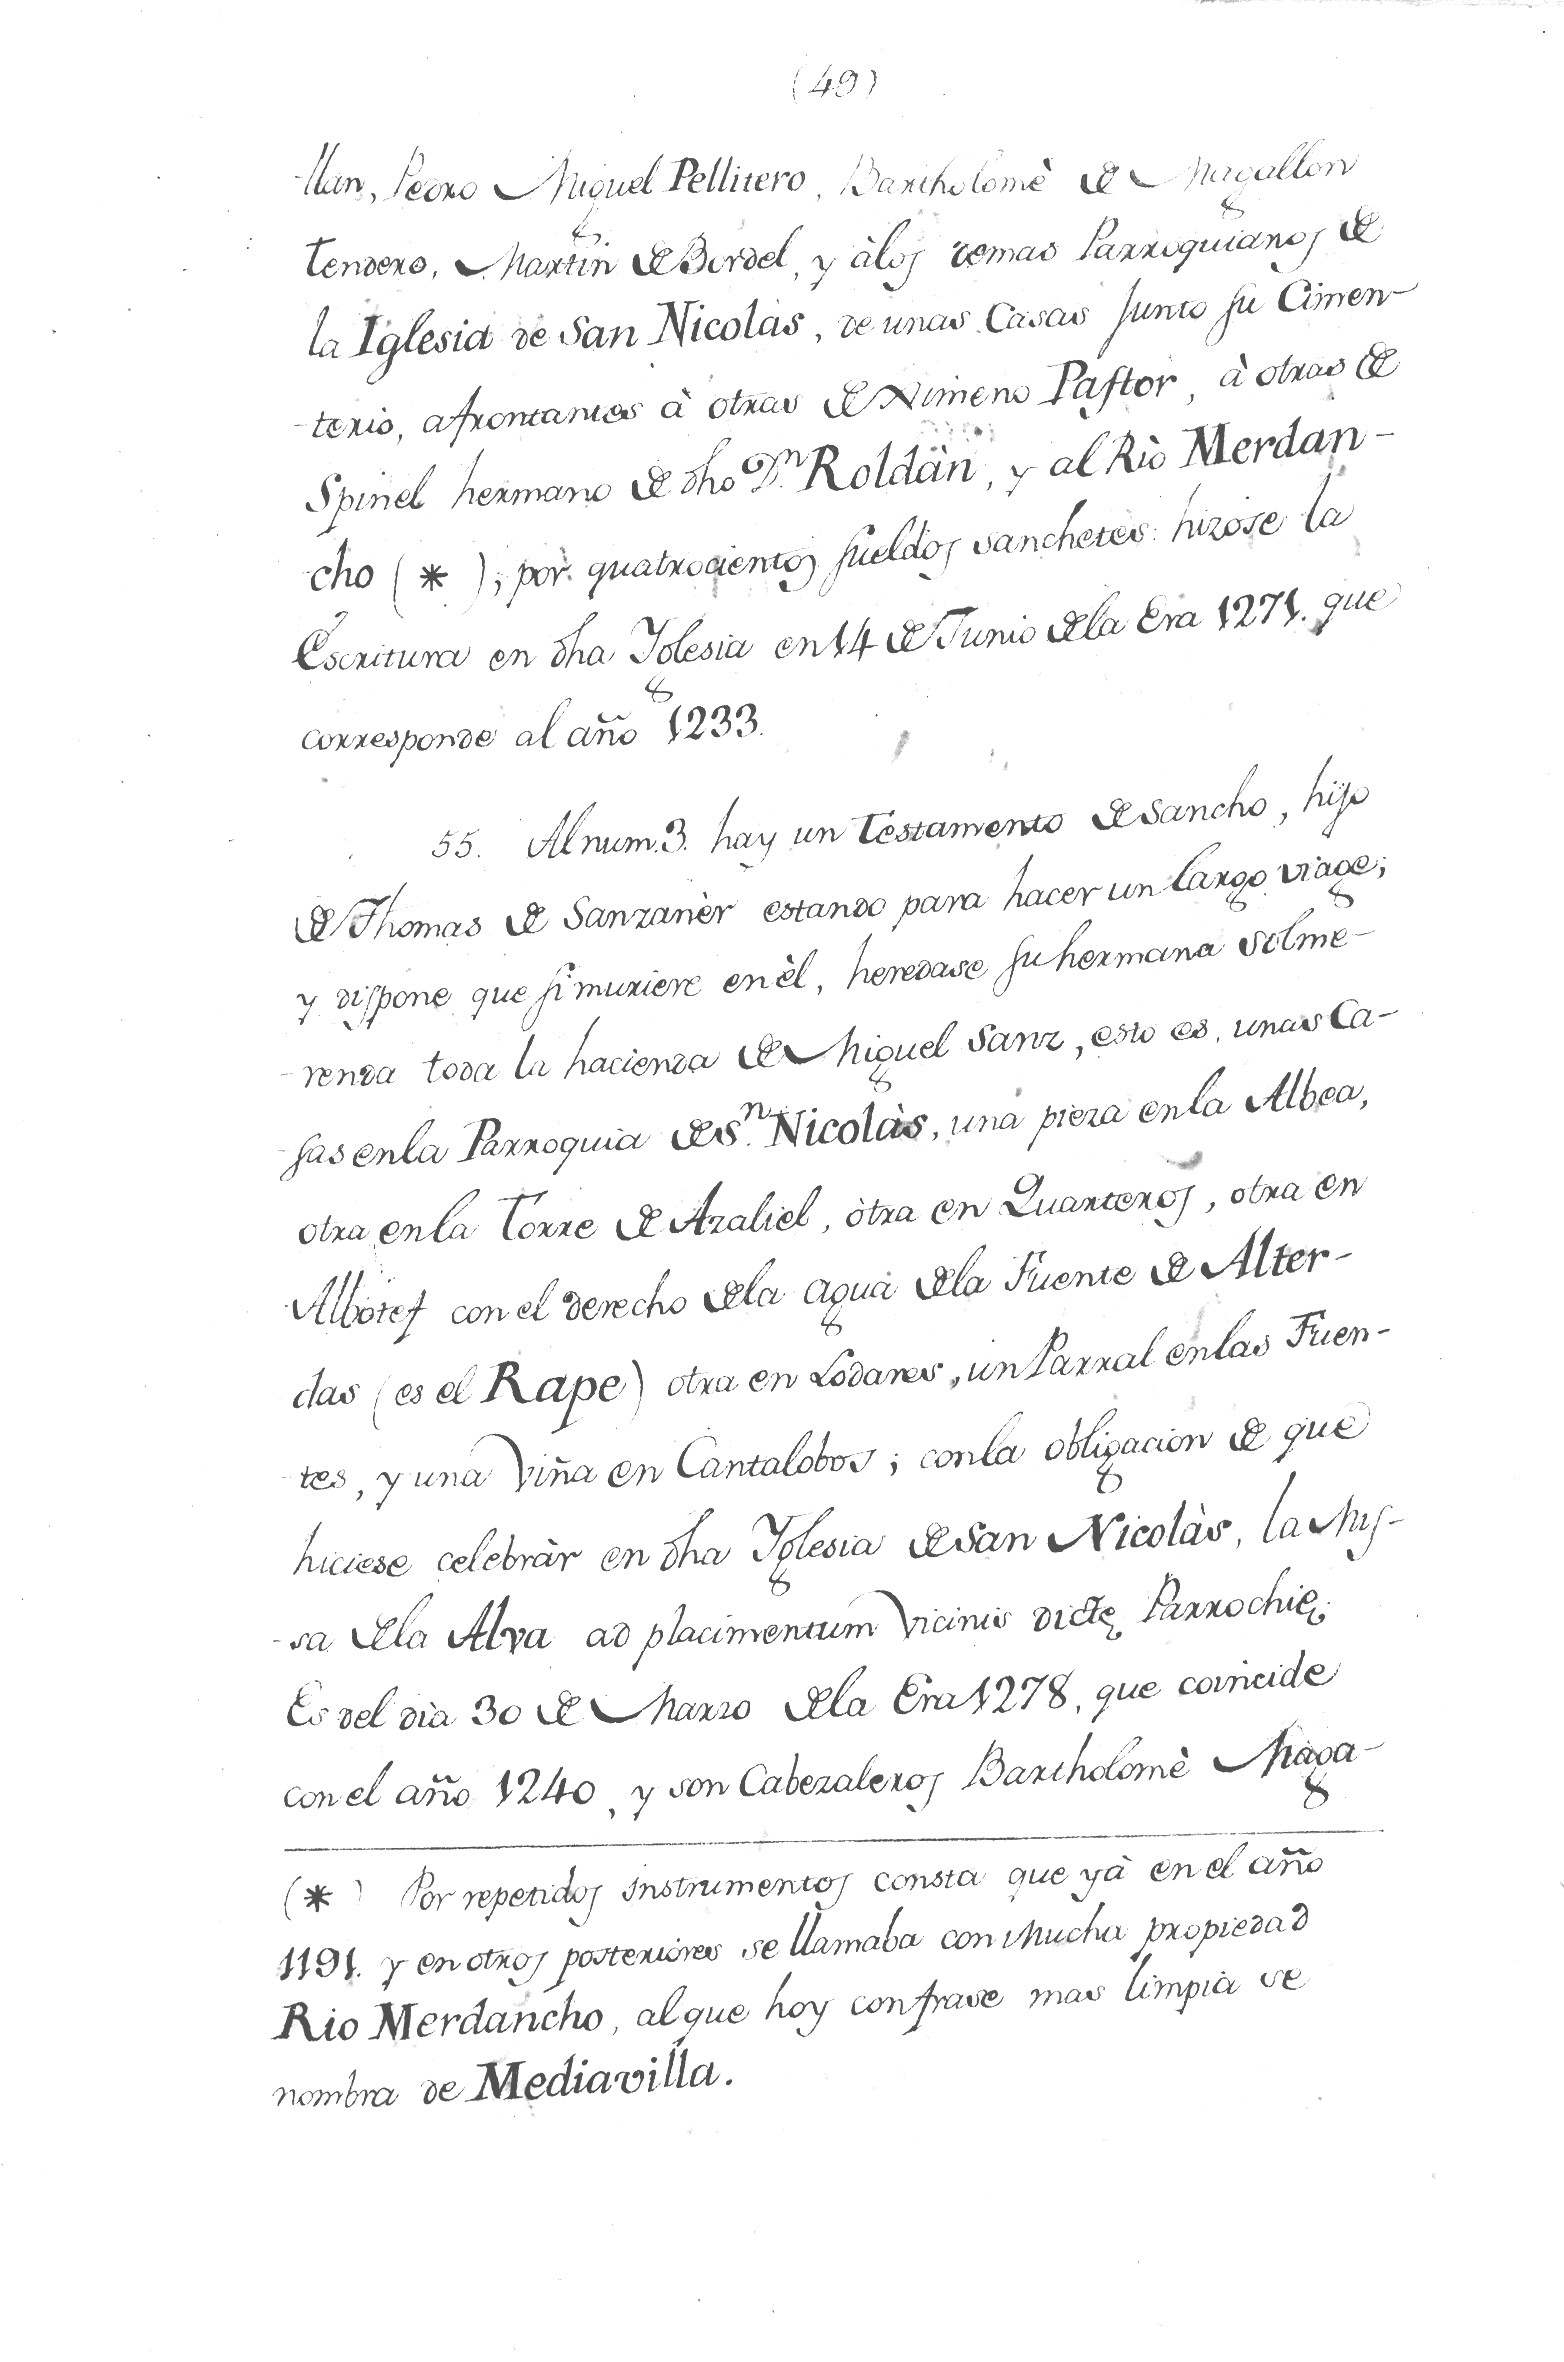 (49)
llan, Pedro Miguel Pellitero, Bartholomè de Magallon
Tendero, Martin de Bordel, y àlos demas Parroquianos de
la Iglesia de San Nicolàs, de unas Casas junto su Cimen-
terio, afrontantes à otras de Ximeno Pastor, à otras de
Spinel hermano de dho Dn. Roldàn, y al Rìo Merdan-
cho (*); por quatrocientos sueldos sanchetes: hizose la
Escritura en dha Yglesia en 14 de Junio dela Era 1271. que
corresponde al año 1233.
55. Al num. 3. hay un Testamento de Sancho, hijo
de Thomas de Sanzanèr estando para hacer un largo viage;
y dispone que si muriere en èl, heredase su hermana Solme-
renda toda la hacienda de Miguel Sanz, esto es, unas Ca-
sas enla Parroquia de Sn. Nicolàs, una pieza enla Albea,
otra enla Torre de Azaliel, òtra en Quarteros, otra en
Albotes con el derecho dela agua dela Fuente de Alter-
das (es el Rape) otra en Lodares, un Parral enlas Fuen-
tes, y una Viña en Cantalobos; conla obligacion de que
hiciese celebràr en dha Yglesia de San Nicolàs, la Mis-
sa dela Alva ad placimentum Vicinis dictę Parrochię.
Es del dia 30 de Marzo dela Era 1278, que coincide
con el año 1240, y son Cabezaleros Bartholomè Maga-
(*) Por repetidos instrumentos consta que yà en el año
1191. y en otros posteriores se llamaba con mucha propiedad
Rio Merdancho, al que hoy con frase mas limpia se
nombra de Mediavilla.